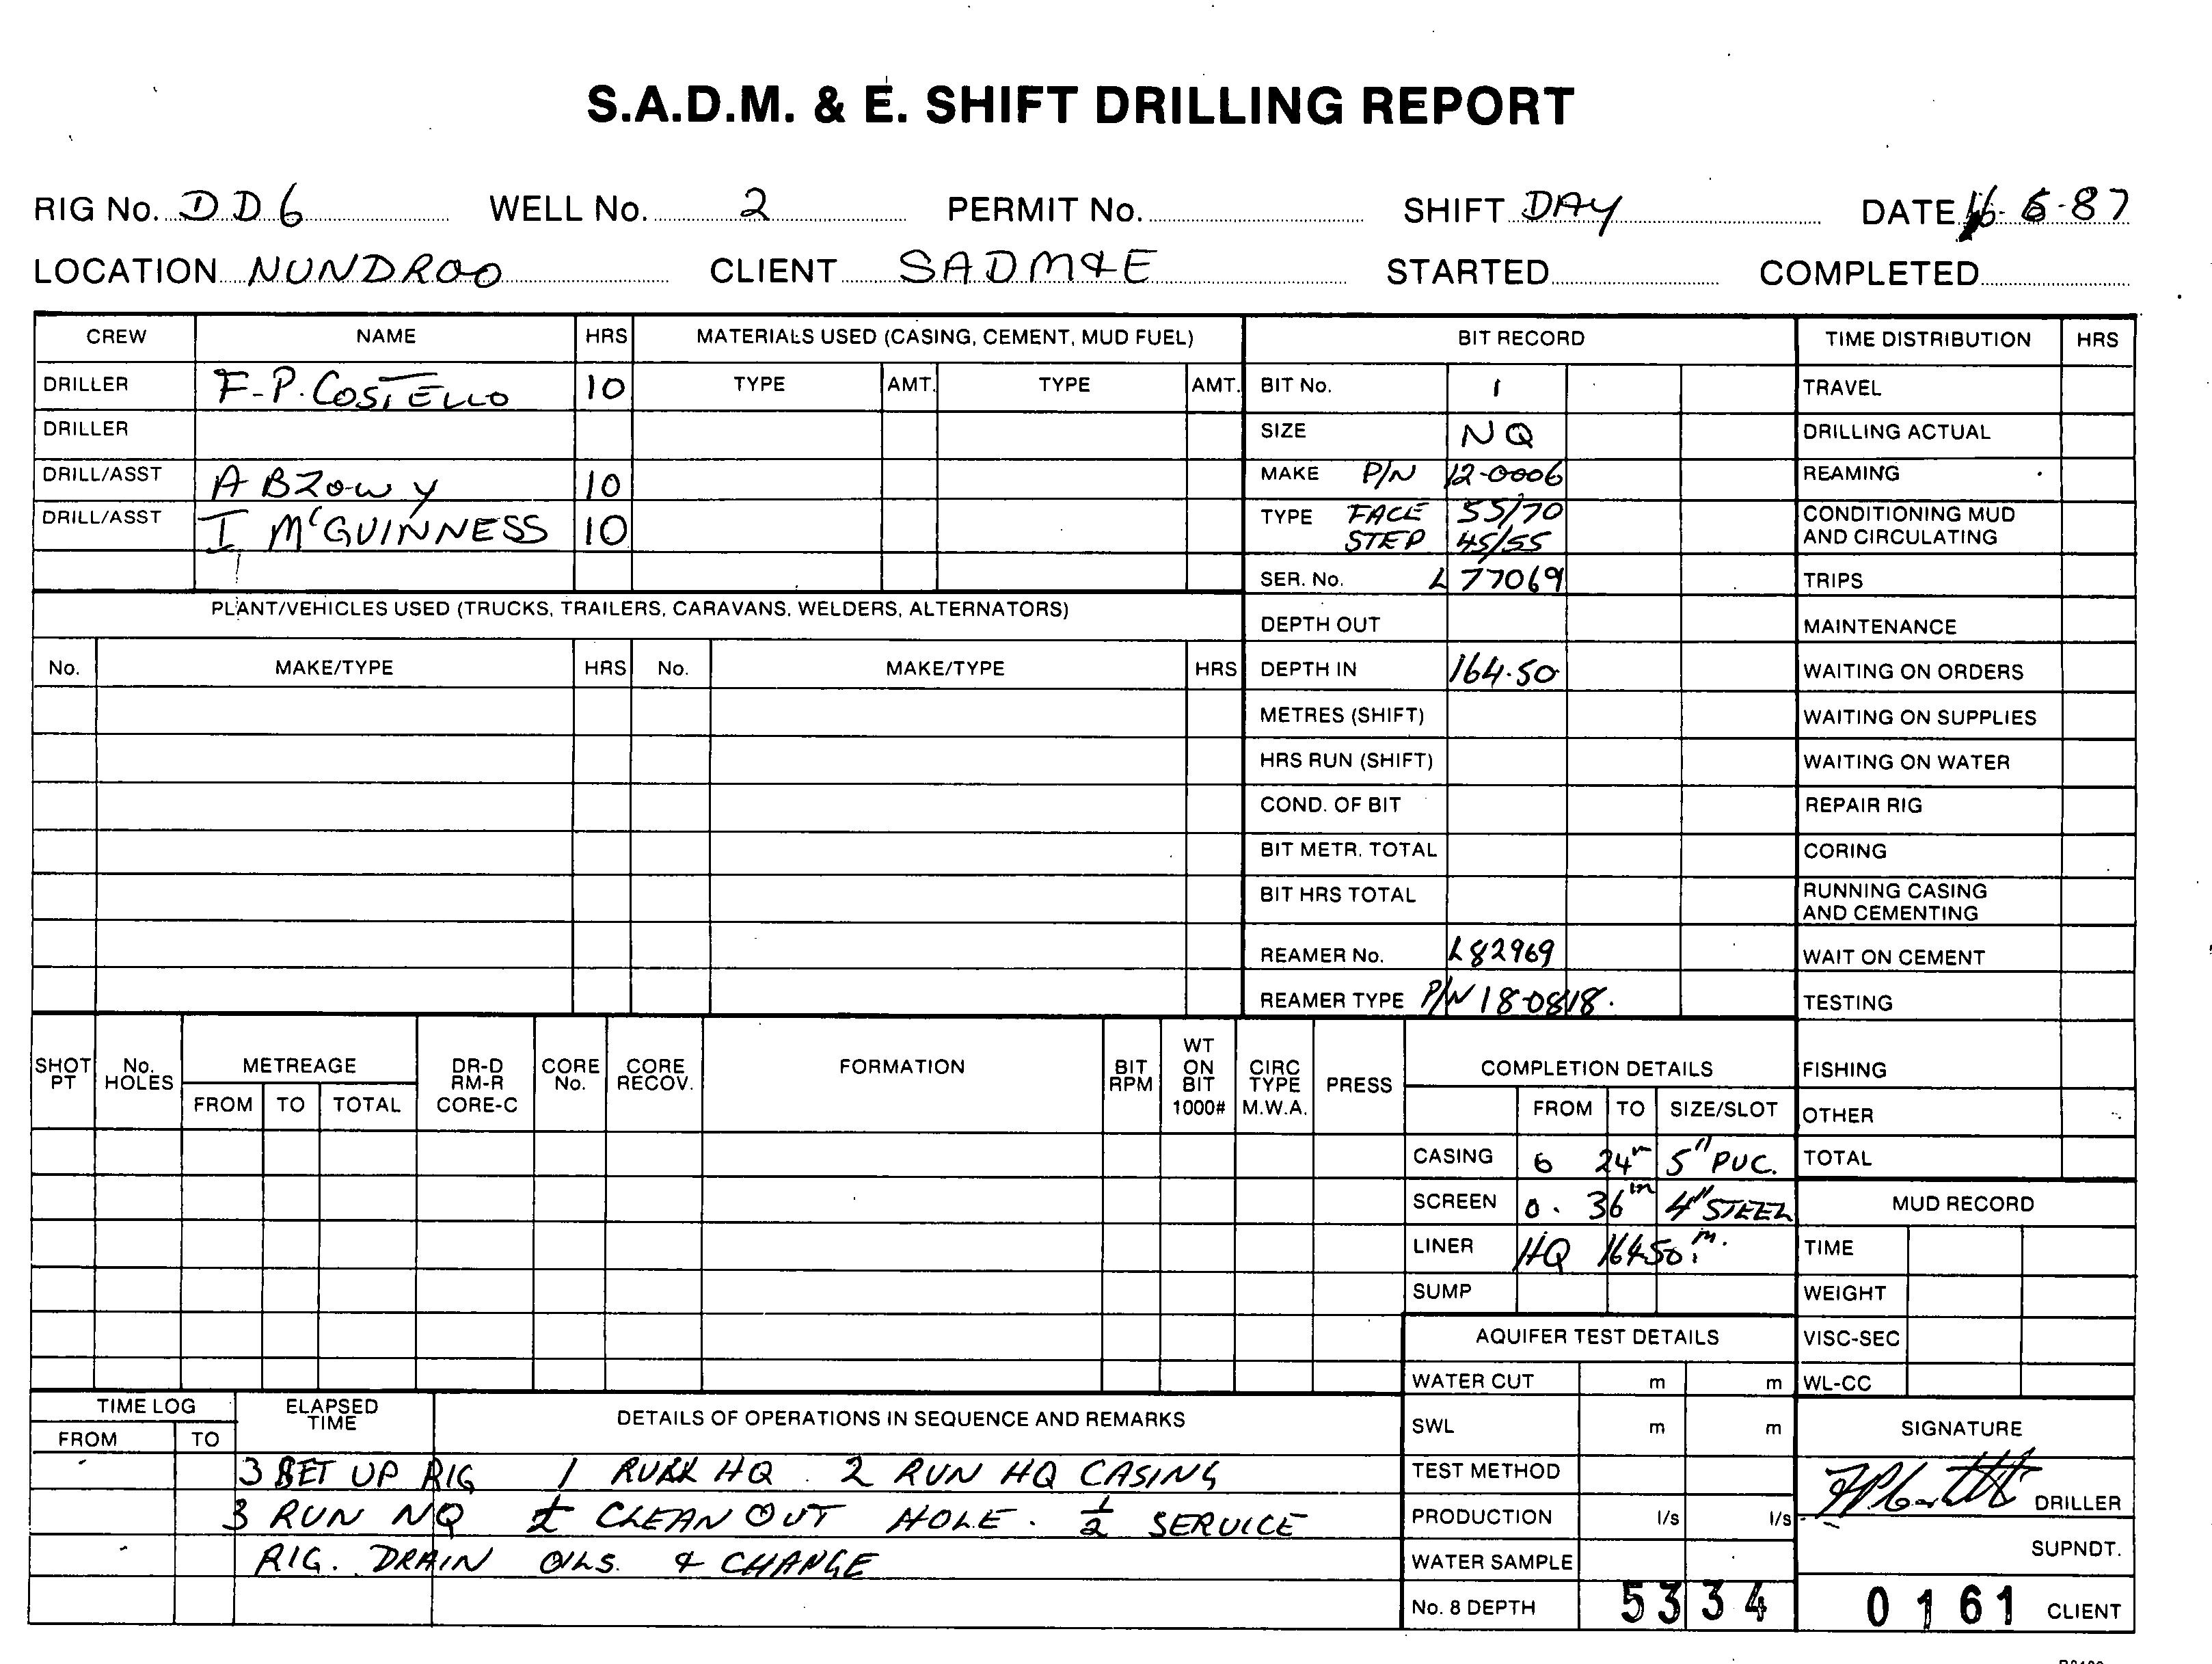 S.A.D.M. & E. SHIFT DRILLING REPORT
RIG No. DD6 WELL No. 2 PERMIT No. SHIFT DAY DATE 16-6-87
LOCATION NUNDROO CLIENT SADM&E STARTED COMPLETED
CREW NAME HRS MATERIALS USED (CASING, CEMENT, MUD FUEL) BIT RECORD TIME DISTRIBUTION HRS
DRILLER F.P. COSTELLO 10 TYPE AMT. TYPE AMT. BIT No. 1 TRAVEL
DRILLER SIZE NQ DRILLING ACTUAL
DRILL/ASST A BZOWY 10 MAKE P/N 12-0006 REAMING
DRILL/ASST I McGUINNESS 10 TYPE FACE 55/70 CONDITIONING MUD
STEP 45/55 AND CIRCULATING
SER. No. L 77069 TRIPS
PLANT/VEHICLES USED (TRUCKS, TRAILERS, CARAVANS, WELDERS, ALTERNATORS) DEPTH OUT MAINTENANCE
No. MAKE/TYPE HRS No. MAKE/TYPE HRS DEPTH IN 164.50 WAITING ON ORDERS
METRES (SHIFT) WAITING ON SUPPLIES
HRS RUN (SHIFT) WAITING ON WATER
COND. OF BIT REPAIR RIG
BIT METR. TOTAL CORING
BIT HRS TOTAL RUNNING CASING
AND CEMENTING
REAMER No. L82969 WAIT ON CEMENT
REAMER TYPE P/N 18-0818. TESTING
SHOT PT No. HOLES METREAGE DR-D RM-R CORE-C CORE No. CORE RECOV. FORMATION BIT RPM WT ON BIT 1000# CIRC TYPE M.W.A. PRESS COMPLETION DETAILS FISHING
FROM TO TOTAL FROM TO SIZE/SLOT OTHER
CASING 0 24m 5" PVC. TOTAL
SCREEN 0. 36m 4" STEEL MUD RECORD
LINER HQ 164.50m. TIME
SUMP WEIGHT
AQUIFER TEST DETAILS VISC-SEC
WATER CUT m m WL-CC
TIME LOG ELAPSED TIME DETAILS OF OPERATIONS IN SEQUENCE AND REMARKS SWL m m SIGNATURE
FROM TO
3 SET UP RIG 1 HQ. 2 RUN HQ CASING TEST METHOD
3 RUN NQ CLEAN OUT HOLE. ½ SERVICE PRODUCTION l/s l/s DRILLER
RIG. DRAIN OILS. & CHANGE WATER SAMPLE SUPNDT.
No. 8 DEPTH 5334 0161 CLIENT